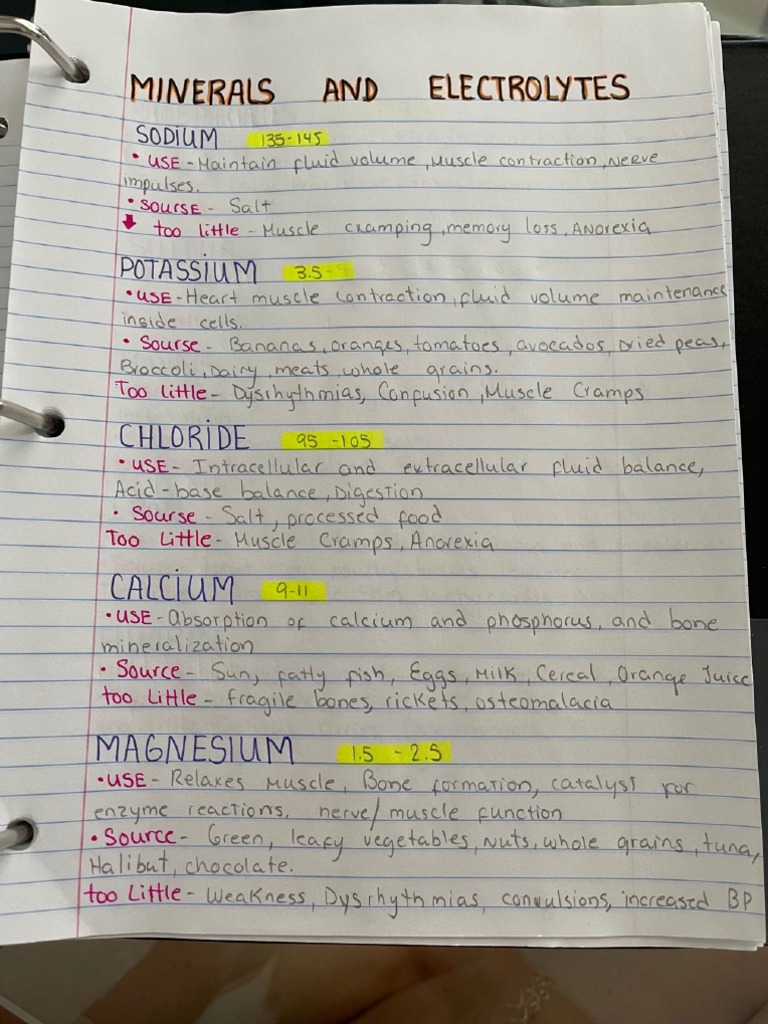 MINERALS AND ELECTROLYTES
SODIUM 135-145
• USE - Maintain fluid volume, Muscle contraction, Nerve
impulses.
• SOURSE - Salt
↓ too little - Muscle cramping, memory loss, Anorexia
POTASSIUM 3.5-5
• USE - Heart muscle contraction, fluid volume maintenance
inside cells.
• Sourse - Bananas, oranges, tomatoes, avocados, Dried peas,
Broccoli, Dairy, meats, whole grains.
Too little - Dysrhythmias, Confusion, Muscle Cramps
CHLORIDE 95-105
• USE - Intracellular and extracellular fluid balance,
Acid-base balance, Digestion
• Sourse - Salt, processed food
Too Little - Muscle Cramps, Anorexia
CALCIUM 9-11
• USE - Absorption of calcium and phosphorus, and bone
mineralization
• Source - Sun, fatty fish, Eggs, Milk, Cereal, Orange Juice
too Little - fragile bones, rickets, osteomalacia
MAGNESIUM 1.5 - 2.5
• USE - Relaxes Muscle, Bone formation, catalyst for
enzyme reactions, nerve/muscle function
• Source - Green, leafy vegetables, Nuts, whole grains, tuna,
Halibut, chocolate.
too Little - Weakness, Dysrhythmias, convulsions, increased BP